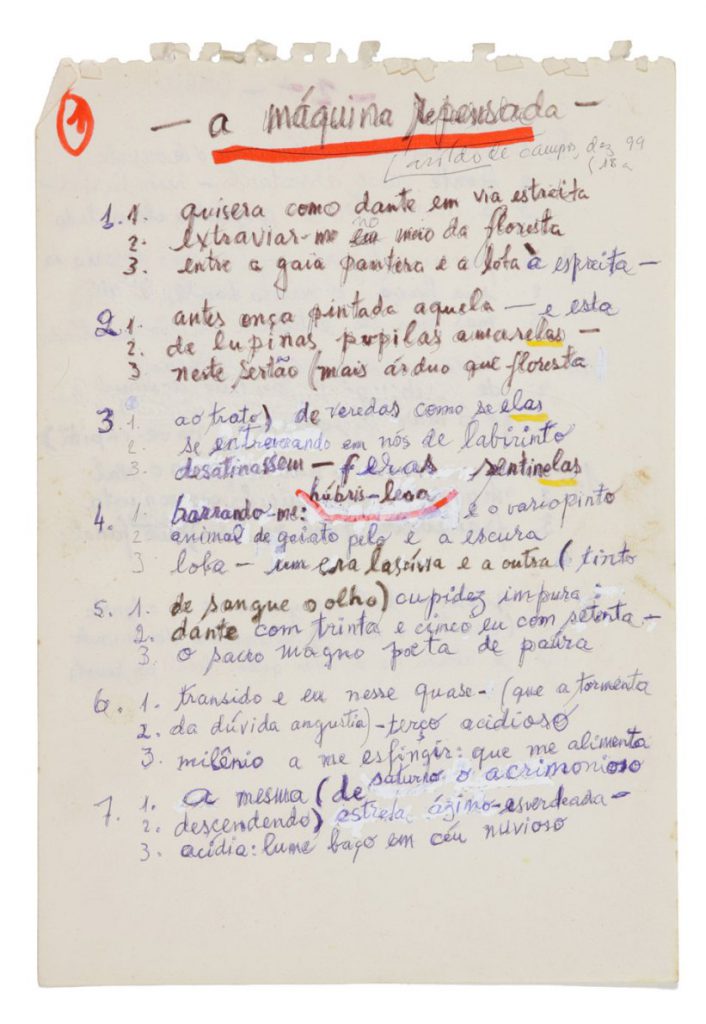 1
— a máquina repensada —
haroldo de campos, dez 99
1. 1. quisera como dante em via estreita
2. extraviar-me no meio da floresta
3. entre a gaia pantera e a loba à espreita —
2. 1. antes onça pintada aquela — e esta
2. de lupinas pupilas amarelas —
3 neste sertão (mais árduo que floresta
3 1. ao trato) de veredas como se elas
2 se entreverando em nós de labirinto
3. desatinassem — feras sentinelas
4. 1. barrando-me: húbris-leoa e o variopinto
2 animal de gaiato pelo e a escura
3 loba — um era lascívia e a outra (tinto
5. 1. de sangue o olho) cupidez impura:
2. dante com trinta e cinco eu com setenta —
3. o sacro magno poeta de paúra
6. 1. transido e eu nesse quase- (que a tormenta
2. da dúvida angustia) -terço acidioso
3. milênio a me esfingir: que me alimenta
7. 1. a mesma (de saturno o acrimonioso
2. descendendo) estrela ázimo-esverdeada —
3. acídia: lume baço em céu nuvioso